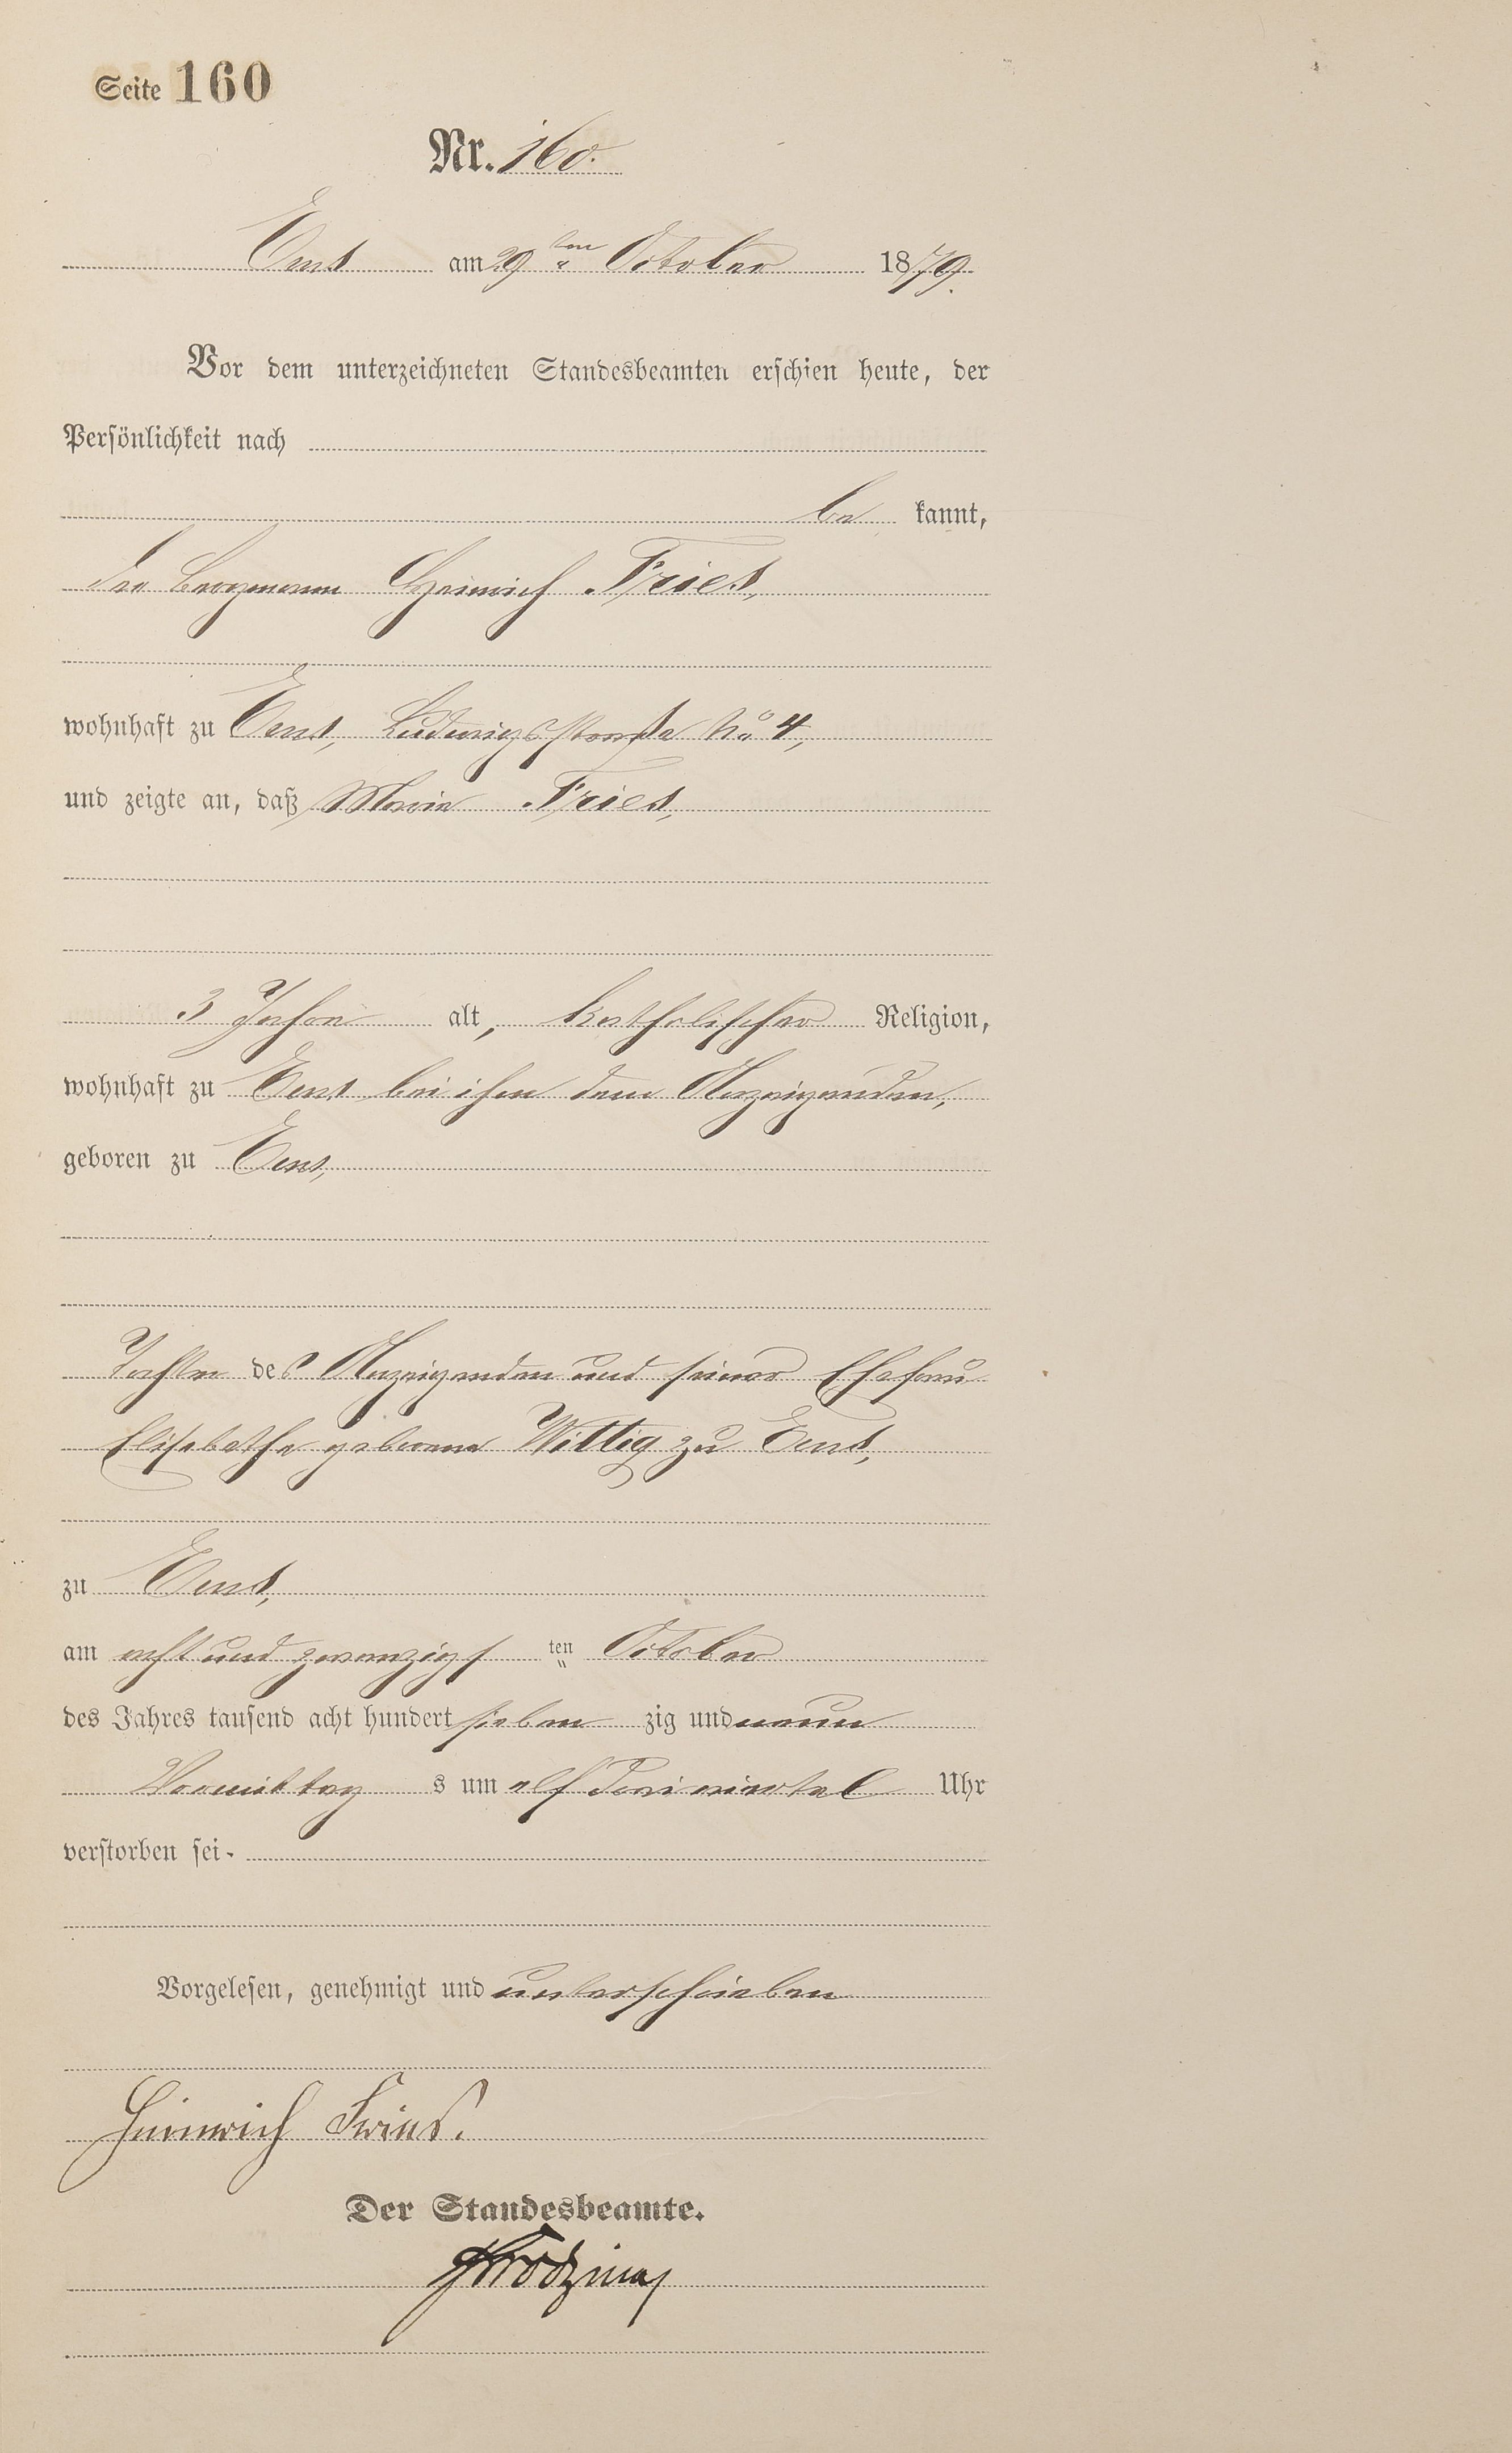 Seite 160
Nr. 160.
Ems am 29ten October 1879.
Vor dem unterzeichneten Standesbeamten erschien heute, der
Persönlichkeit nach
be kannt,
der Bergmann Heinrich Fries,
wohnhaft zu Ems, Ludwigsstraße No 4,
und zeigte an, daß Maria Fries,
3 Jahre alt, katholischer Religion,
wohnhaft zu Ems bei ihm dem Anzeigenden,
geboren zu Ems,
Tochter des Anzeigenden und seiner Ehefrau
Elisabetha geborene Wittig zu Ems,
zu Ems,
am acht und zwanzigs ten October
des Jahres tausend acht hundert sieben zig und neun
Vormittag s um elf dreiviertel Uhr
verstorben sei.
Vorgelesen, genehmigt und unterschrieben
Heinrich Fries.
Der Standesbeamte.